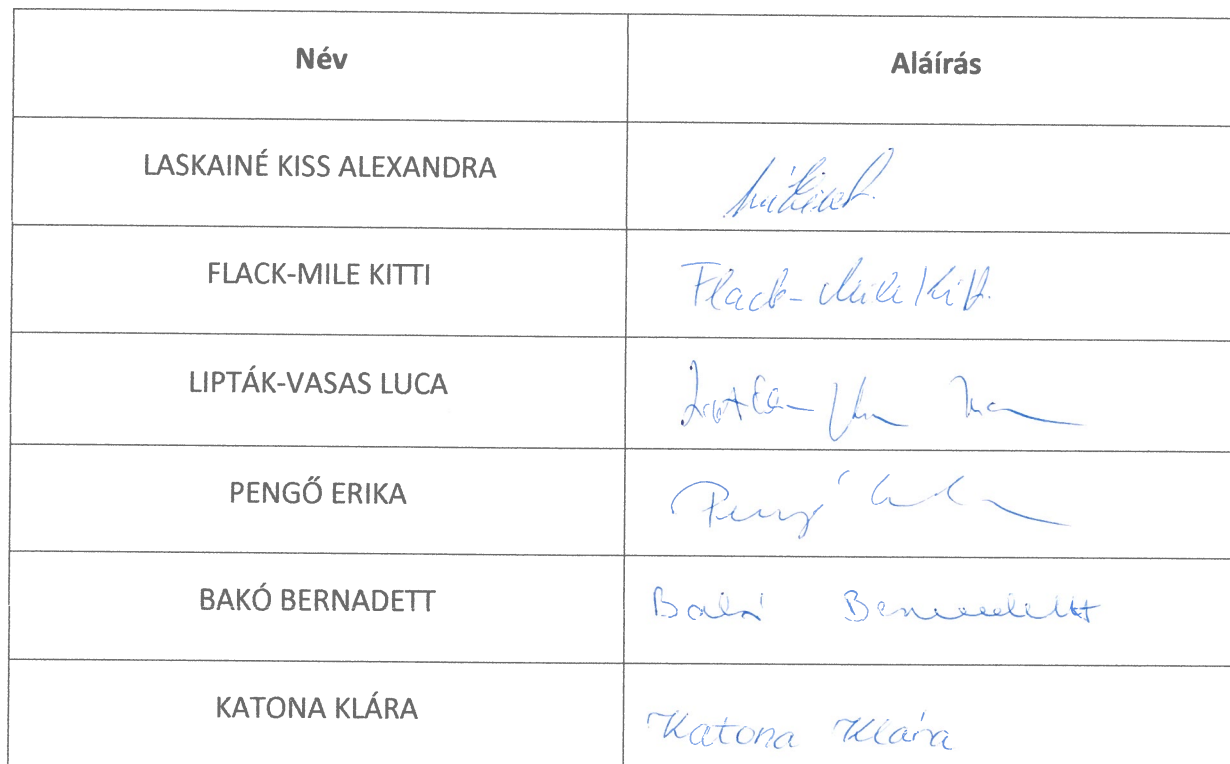 Név Aláírás
LASKAINÉ KISS ALEXANDRA
FLACK-MILE KITTI Flack-Mile Kitti
LIPTÁK-VASAS LUCA
PENGŐ ERIKA Pengő
BAKÓ BERNADETT Bakó Bernadett
KATONA KLÁRA Katona Klára